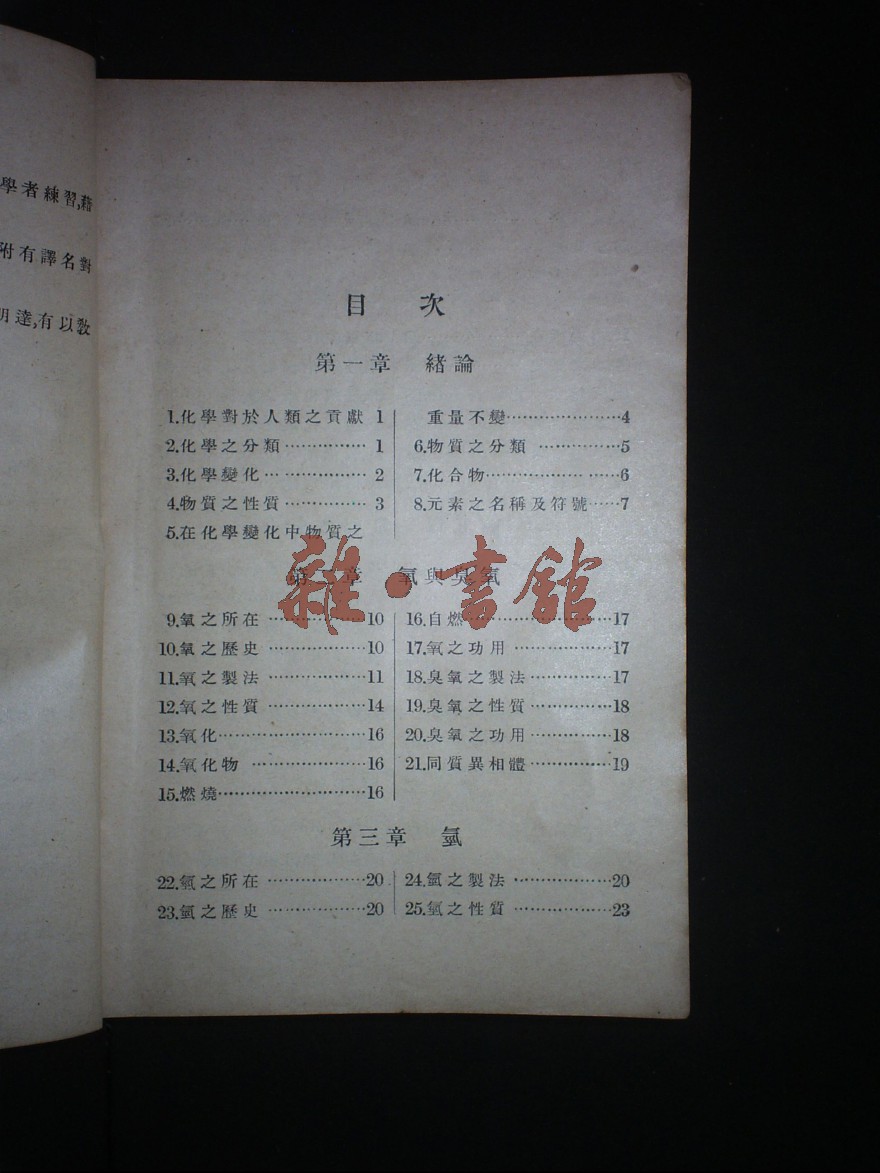 學者練習,藉
附有譯名對
明達,有以敎
目 次
第一章 緒論
1.化學對於人類之貢獻 1
2.化學之分類 ··············· 1
3.化學變化 ··· ············· 2
4.物質之性質 ··············· 3
5.在化學變化中物質之
重量不變····················4
6.物質之分類 ···············5
7.化合物·················· ······6
8.元素之名稱及符號······7
第二章 氧與臭氧
9.氧之所在 ··················10
10.氧之歷史 ··················10
11.氧之製法 ··················11
12.氧之性質 ··················14
13.氧化···························16
14.氧化物 ·····················16
15.燃燒···························16
16.自燃 ··························17
17.氧之功用 ··················17
18.臭氧之製法 ···············17
19.臭氧之性質 ···············18
20.臭氧之功用 ···············18
21.同質異相體 ···············19
第三章 氫
22.氫之所在 ··················20
23.氫之歷史 ··················20
24.氫之製法 ··················20
25.氫之性質 ··················23
雜·書館